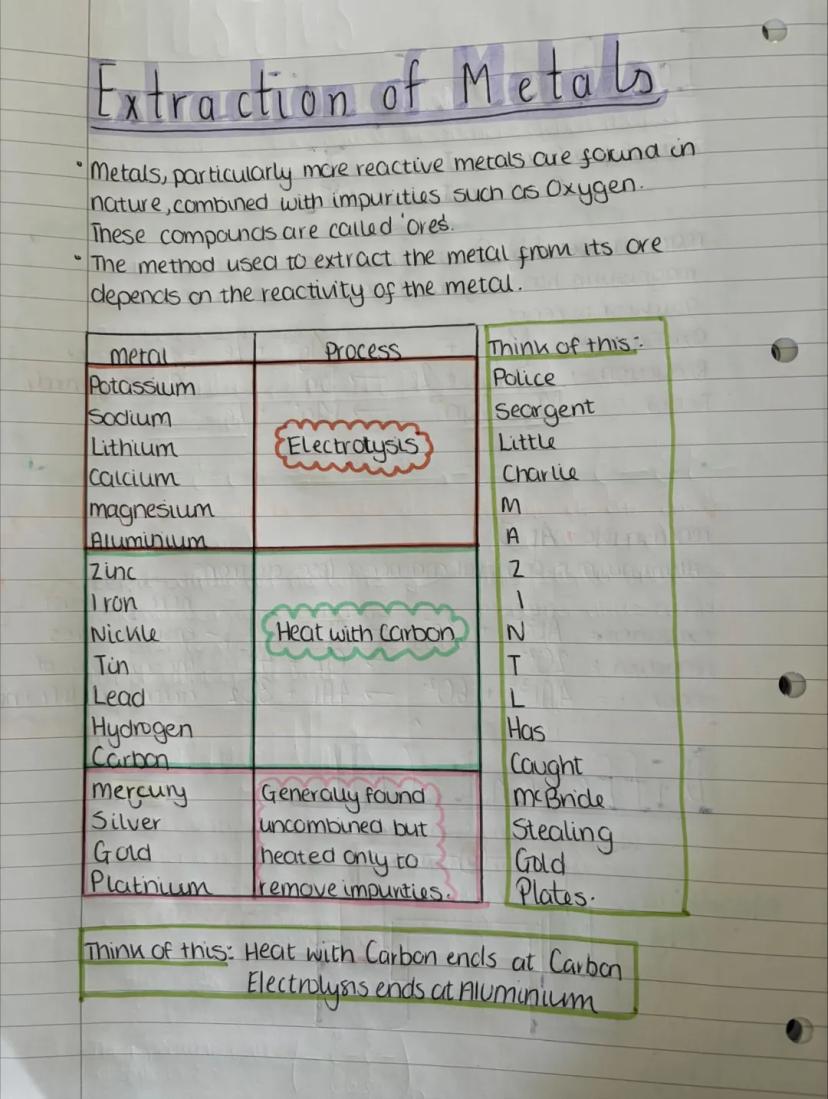 Extraction of Metals
• Metals, particularly more reactive metals are found in
nature, combined with impurities such as Oxygen.
These compounds are called 'ores'.
• The method used to extract the metal from its ore
depends on the reactivity of the metal.
Metal
Process
Potassium
Sodium
Lithium
Calcium
Magnesium
Aluminium
Electrolysis
Zinc
Iron
Nickle
Tin
Lead
Hydrogen
Carbon
Heat with Carbon
Mercury
Silver
Gold
Platnium
Generally found
uncombined but
heated only to
remove impurities.
Think of this:
Police
Seargent
Little
Charlie
M
A
Z
I
N
T
L
Has
Caught
McBride
Stealing
Gold
Plates.
Think of this: Heat with Carbon ends at Carbon
Electrolysis ends at Aluminium